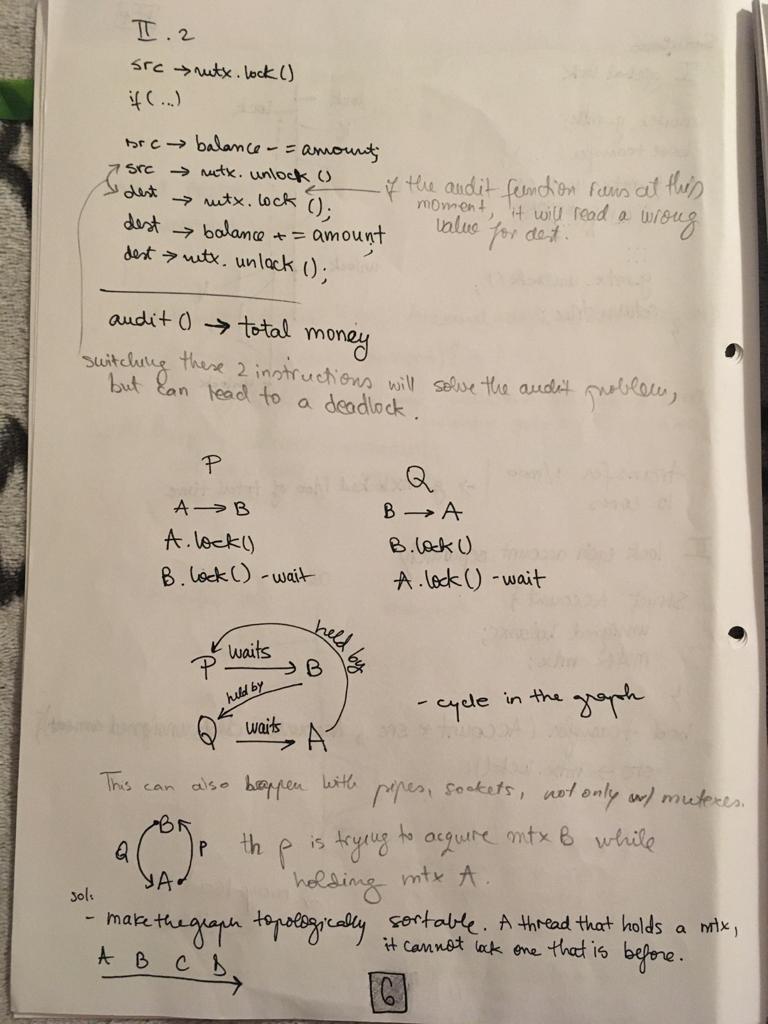 II.2
src → mtx.lock()
if(...)
src → balance -= amount;
src → mtx.unlock()
dest → mtx.lock();
if the audit function runs at this
moment, it will read a wrong
value for dest.
dest → balance += amount;
dest → mtx.unlock();
audit() → total money
switching these 2 instructions will solve the audit problem,
but can lead to a deadlock.
P
Q
A → B
B → A
A.lock()
B.lock()
B.lock() - wait
A.lock() - wait
held by
P waits B
held by
Q waits A
- cycle in the graph
This can also happen with pipes, sockets, not only w/ mutexes.
B
Q P
A
th p is trying to acquire mtx B while
holding mtx A.
sol:
- make the graph topologically sortable. A thread that holds a mtx,
it cannot lock one that is before.
A B C D
6